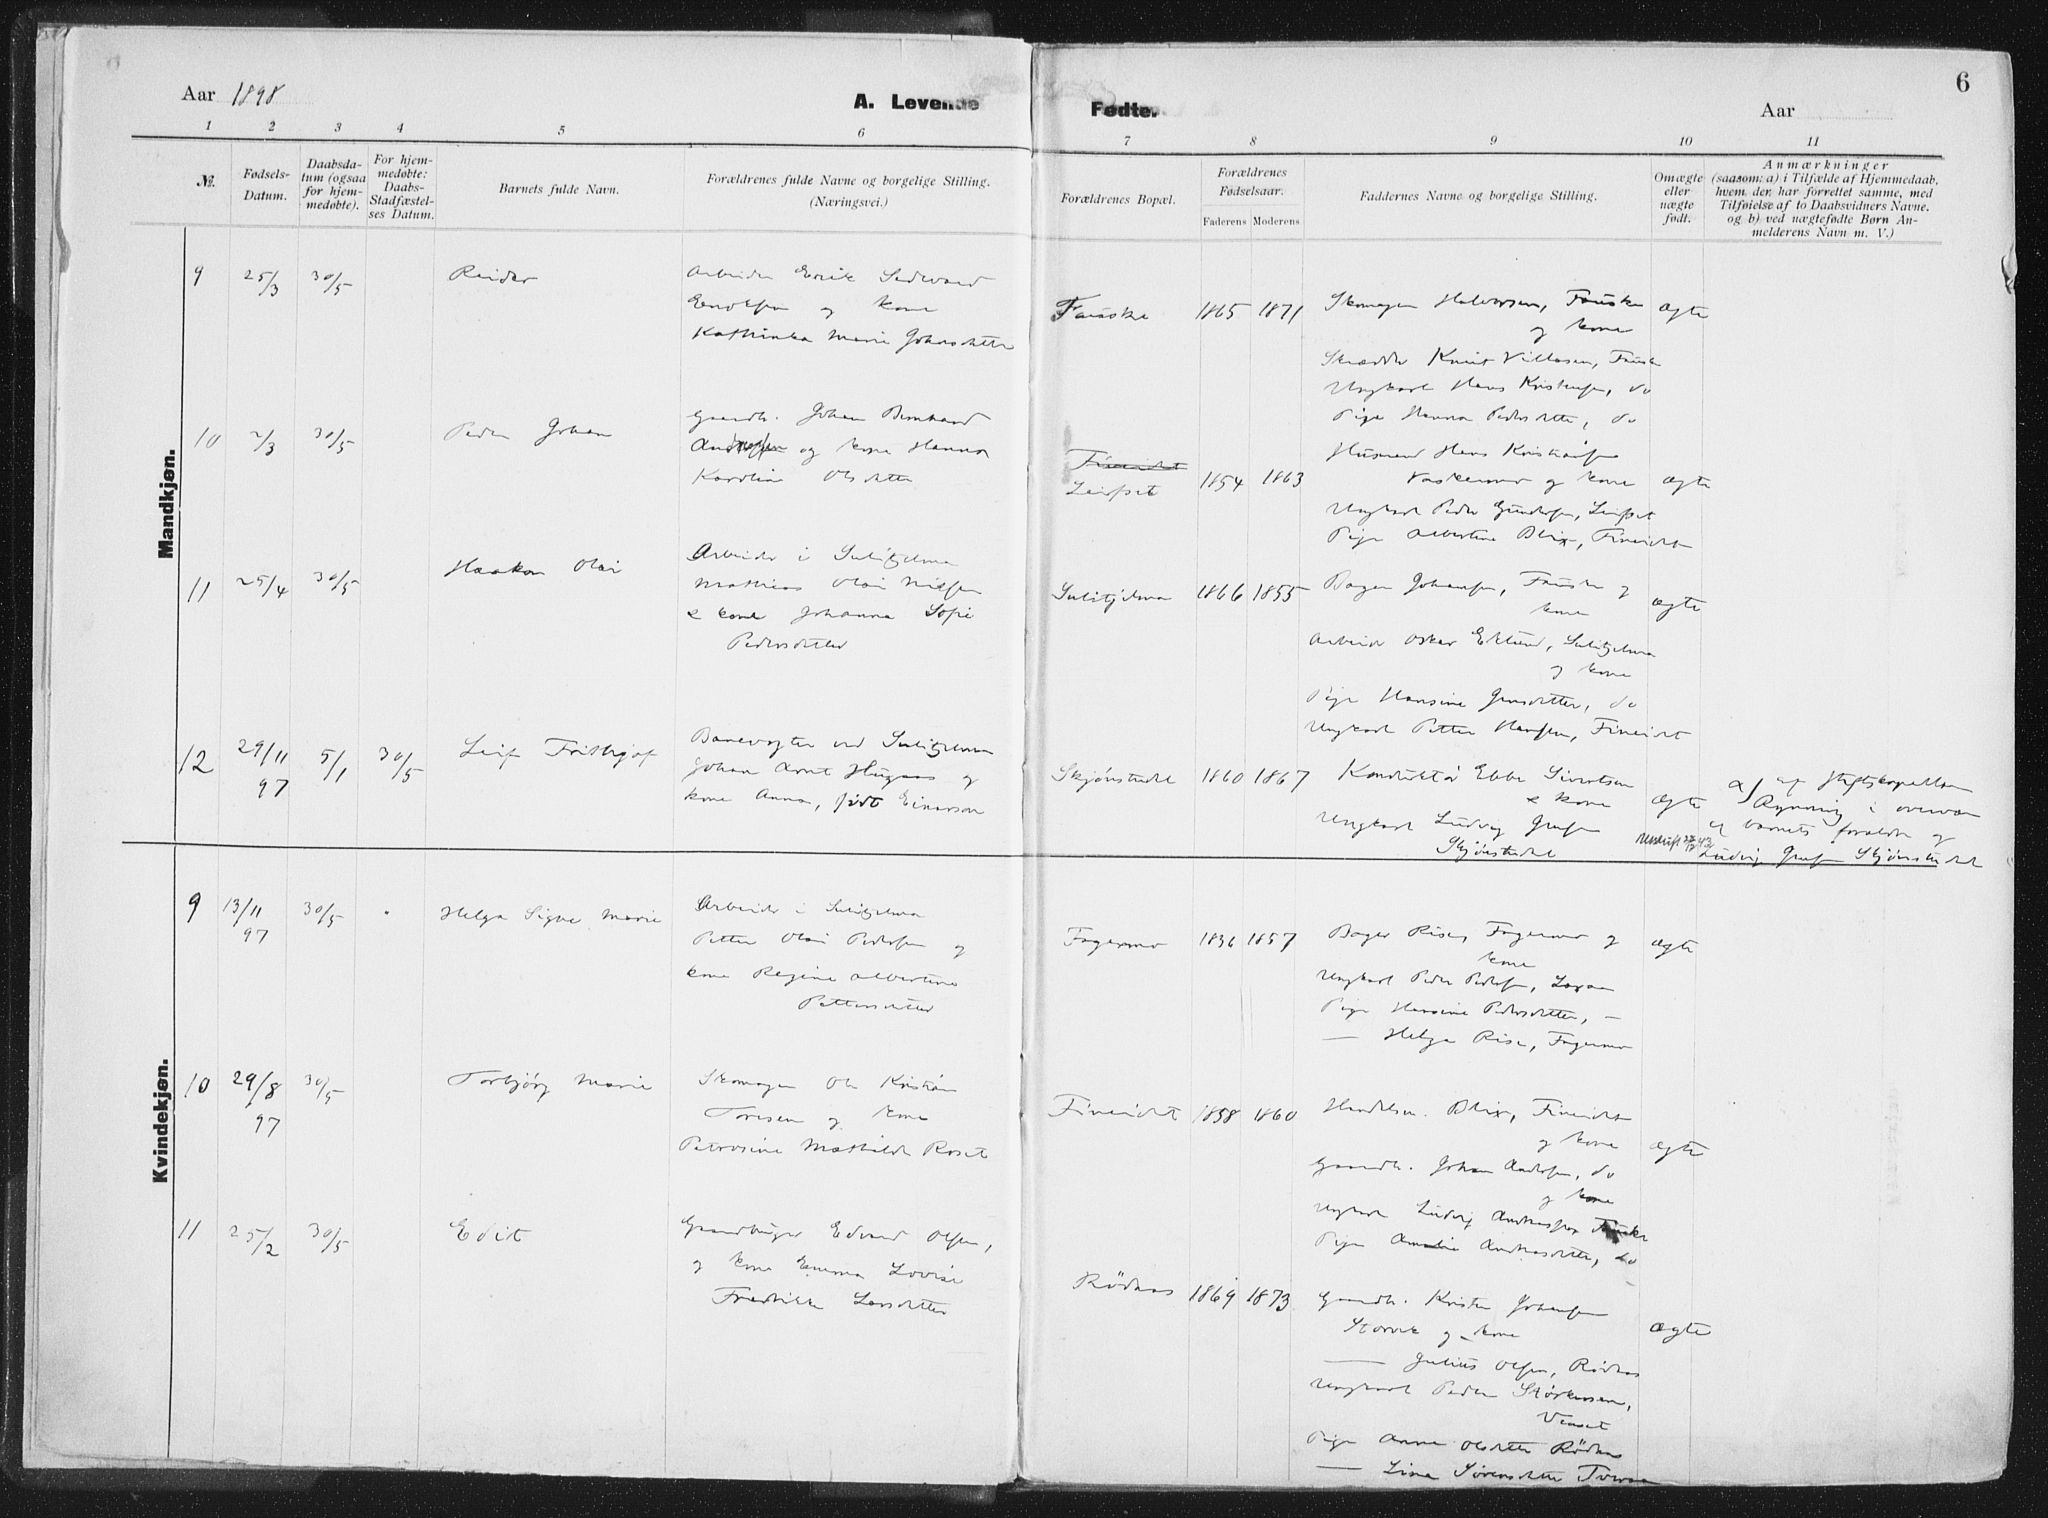 6
Aar 1898
A. Levende Fødte.
Aar
1 2 3 4 5 6 7 8 9 10 11
№.
Fødsels-
Datum.
Daabsda-
tum (ogsaa
for hjem-
medøbte).
For hjem-
medøbte:
Daabs-
Stadfæstel-
ses Datum.
Barnets fulde Navn.
Forældrenes fulde Navne og borgelige Stilling.
(Næringsvei.)
Forældrenes Bopæl.
Forældrenes
Fødselsaar.
Faderens Moderens
Faddernes Navne og borgelige Stilling.
Omægte
eller
uægte
født.
Anmærkninger
(saasom: a) i Tilfælde af Hjemmedaab,
hvem der har forrettet samme, med
Tilføielse af to Daabsvidners Navne.
og b) ved uægtefødte Børn An-
melderens Navn m. V.)
Mandkjøn.
9 25/3 30/5 Reidar
Arbeider Erik Sedvard
og kone
Kathrinka Marie Johnsdatter
Fauske 1865 1871
Skomager Halvorsen, Fauske
og kone
Ægte
Skrædder Knut Villasen, Fauske
Ungkarl Hans Kristensen, do
Pige Hanna Pedersdatter, do
10 2/3 30/5 Peder Johan
Gaardb. Johan Bernhard
og kone Hanna
Karoline Olsdatter
Fineidet
Leifset 1854 1863
Husmand Hans Kristiansen
og kone
Ægte
Ungkarl Peder Gundersen, Leifset
Pige Albertine Blix, Fineidet
11 25/4 30/5 Haakon Olai
Arbeider i Sulitjelma
Mathias Olai Nilsen
& kone Johanna Sofie
Pedersdatter
Sulitjelma 1866 1855
Bager Johansen, Fauske og
kone
Ægte
Arbeider Oskar Eklund, Sulitjelma
og kone
Pige Hansine Jensdatter, do
Ungkarl Petter Hansen, Fineidet
12 29/11 97 5/1 30/5 Leif Frithjof
Banevogter ved Sulitjelma
Johan Arnt Hugaas og
kone Anna, født Einarson
Skjønstuedt 1860 1867
Konduktør Ebbe Sivertsen
& kone
Ungkarl Ludvig
Skjønstuedt
Ægte
a) af Stiftskapellan
Rynning i overvær
af barnets foraldre og
Ludvig Skjønstuedt
Kvindekjøn.
9 13/11 97 30/5 Helga Signe Marie
Arbeider i Sulitjelma
Petter Olai Pedersen og
kone Regine Albertine
Pettersdatter
Fagermo 1836 1857
Bager Rise, Fagermo og
kone
Ægte
Ungkarl Peder Pedersen,
Pige Hansine Pedersdatter, —
— Helga Rise, Fagermo
10 29/8 97 30/5 Torbjørg Marie
Skomager Ole Kristian
Toresen og kone
Petrosine Mathilde Roset
Fineidet 1858 1860
Handelsm. Blix, Fineidet
og kone
Ægte
Gaardb. Johan Andersen, do
og kone
Ungkarl Ludvig Andreassen Fauske
Pige Amalie Andreasdatter, do
11 25/2 30/5 Edit
Gaardbruger Edvard Olsen,
og kone Emma Lovise
Fredrikke Larsdatter
Rødnæs 1869 1873
Gaardb. Kristen Johansen
Storvik og kone
Ægte
— Julius Olsen, Rødnæs
Ungkarl Peder Størkersen,
Venset
Pige Anna Olsdatter Rødnæs
— Lina Sørensdatter